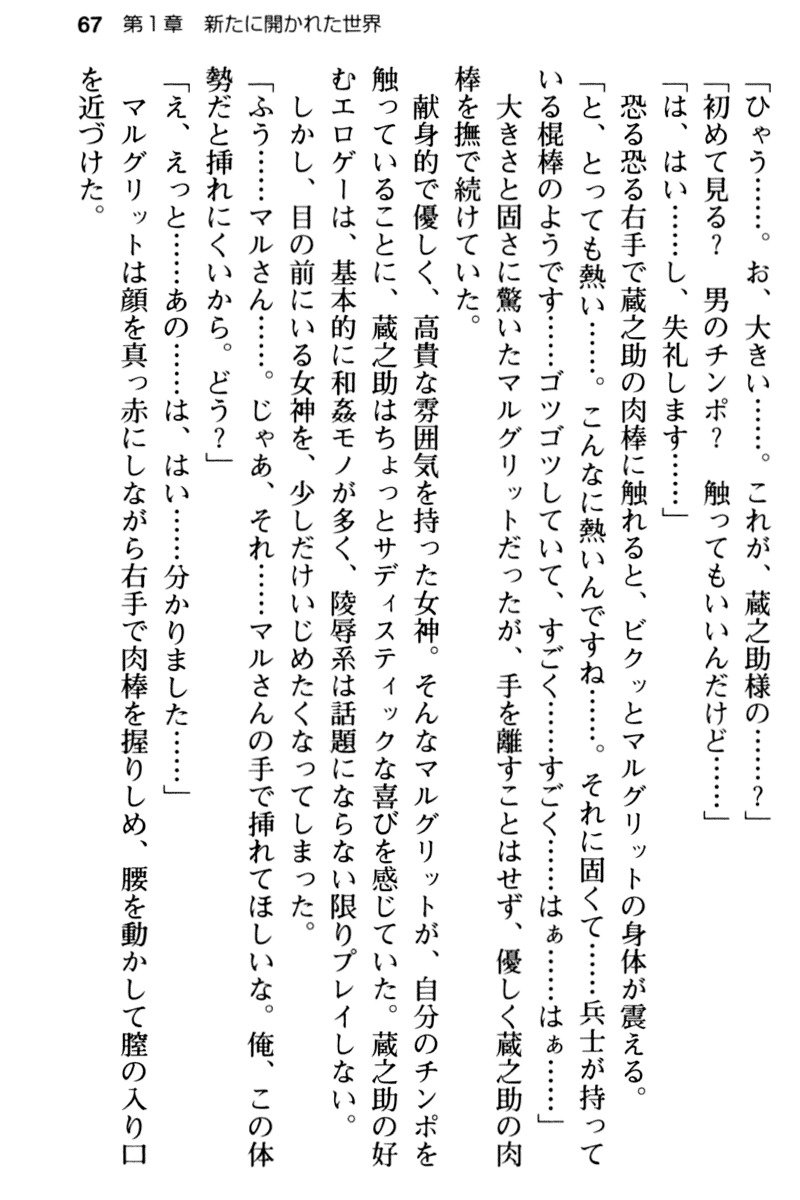 67 第1章　新たに開かれた世界
「ひゃう……。お、大きい……。これが、蔵之助様の……？」
「初めて見る？　男のチンポ？　触ってもいいんだけど……」
「は、はい……し、失礼します……」
　恐る恐る右手で蔵之助の肉棒に触れると、ビクッとマルグリットの身体が震える。
「と、とっても熱い……。こんなに熱いんですね……。それに固くて……兵士が持って
いる棍棒のようです……ゴツゴツしていて、すごく……すごく……はぁ……はぁ……」
　大きさと固さに驚いたマルグリットだったが、手を離すことはせず、優しく蔵之助の肉
棒を撫で続けていた。
　献身的で優しく、高貴な雰囲気を持った女神。そんなマルグリットが、自分のチンポを
触っていることに、蔵之助はちょっとサディスティックな喜びを感じていた。蔵之助の好
むエロゲーは、基本的に和姦モノが多く、陵辱系は話題にならない限りプレイしない。
　しかし、目の前にいる女神を、少しだけいじめたくなってしまった。
「ふう……マルさん……。じゃあ、それ……マルさんの手で挿れてほしいな。俺、この体
勢だと挿れにくいから。どう？」
「え、えっと……あの……は、はい……分かりました……」
　マルグリットは顔を真っ赤にしながら右手で肉棒を握りしめ、腰を動かして膣の入り口
を近づけた。